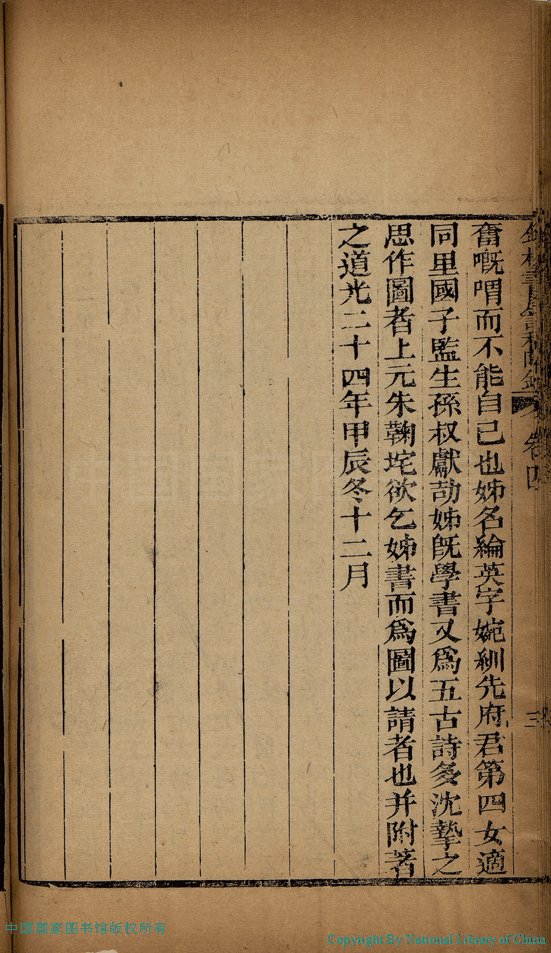 奮嘅喟而不能自己也姊名綸英字婉紃先府君第四女適
同里國子監生孫叔獻劼姊旣學書又爲五古詩多沈摯之
思作圖者上元朱鞠坨欲乞姊書而爲圖以請者也并附著
之道光二十四年甲辰冬十二月
卷四
三
中國國家图书馆版权所有
Copyright By National Library of China